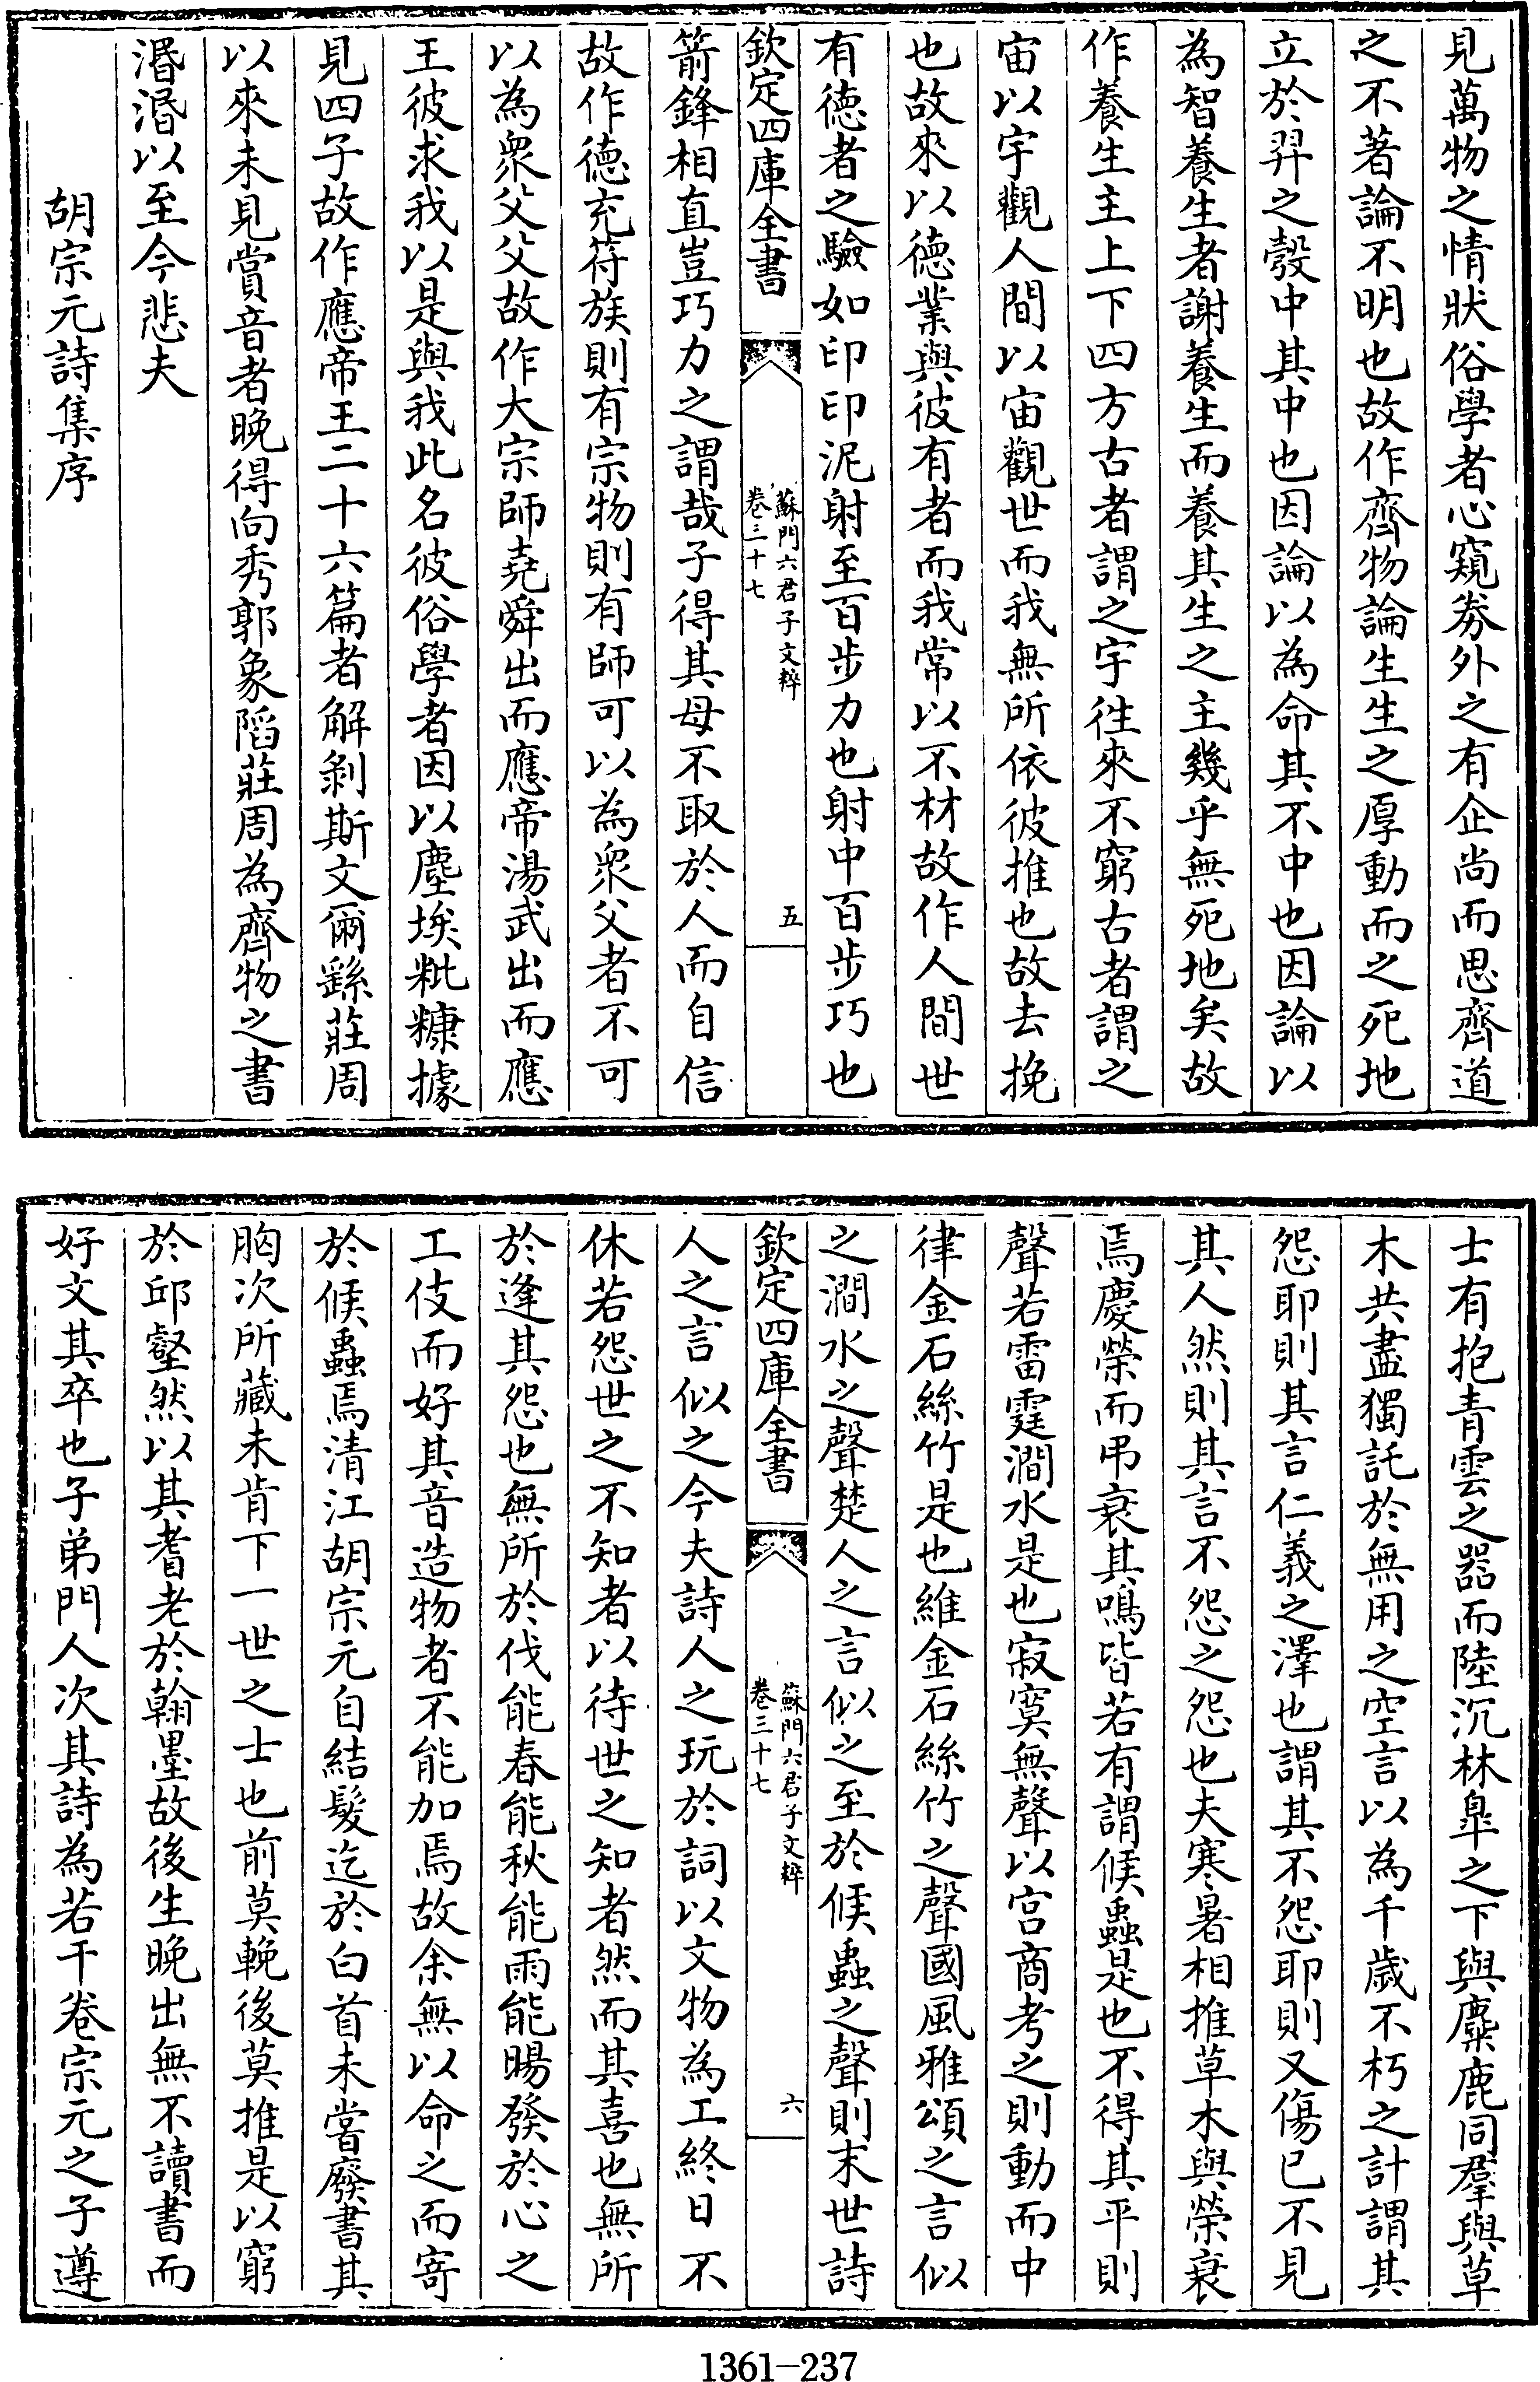 見萬物之情狀俗學者心窺券外之有企尚而思齊道
之不著論不明也故作齊物論生生之厚動而之死地
立於羿之彀中其中也因論以為命其不中也因論以
為智養生者謝養生而養其生之主幾乎無死地矣故
作養生主上下四方古者謂之宇徃來不窮古者謂之
宙以宇觀人間以宙觀世而我無所依彼推也故去挽
也故來以德業與彼有者而我常以不材故作人間世
有德者之驗如印印泥射至百步力也射中百步巧也
欽定四庫全書
蘇門六君子文粹
卷三十七
五
箭鋒相直豈巧力之謂哉子得其母不取於人而自信
故作德充符族則有宗物則有師可以為衆父者不可
以為衆父父故作大宗師堯舜出而應帝湯武出而應
王彼求我以是與我此名彼俗學者因以塵埃粃糠據
見四子故作應帝王二十六篇者解剝斯文爾繇莊周
以來未見賞音者晚得向秀郭象陷莊周為齊物之書
涽涽以至今悲夫
胡宗元詩集序
士有抱青雲之器而陸沉林臯之下與麋鹿同羣與草
木共盡獨託於無用之空言以為千歲不朽之計謂其
怨耶則其言仁義之澤也謂其不怨耶則又傷已不見
其人然則其言不怨之怨也夫寒暑相推草木與榮衰
焉慶榮而弔衰其鳴皆若有謂候蟲是也不得其平則
聲若雷霆澗水是也寂寞無聲以宫商考之則動而中
律金石絲竹是也維金石絲竹之聲國風雅頌之言似
之澗水之聲楚人之言似之至於候蟲之聲則末世詩
欽定四庫全書
蘇門六君子文粹
卷三十七
六
人之言似之今夫詩人之玩於詞以文物為工終日不
休若怨世之不知者以待世之知者然而其喜也無所
於逢其怨也無所於伐能春能秋能雨能暘發於心之
工伎而好其音造物者不能加焉故余無以命之而寄
於候蟲焉清江胡宗元自結髪迄於白首未甞廢書其
胸次所藏未肯下一世之士也前莫輓後莫推是以窮
於邱壑然以其耆老於翰墨故後生晚出無不讀書而
好文其卒也子弟門人次其詩為若干卷宗元之子遵
1361-237